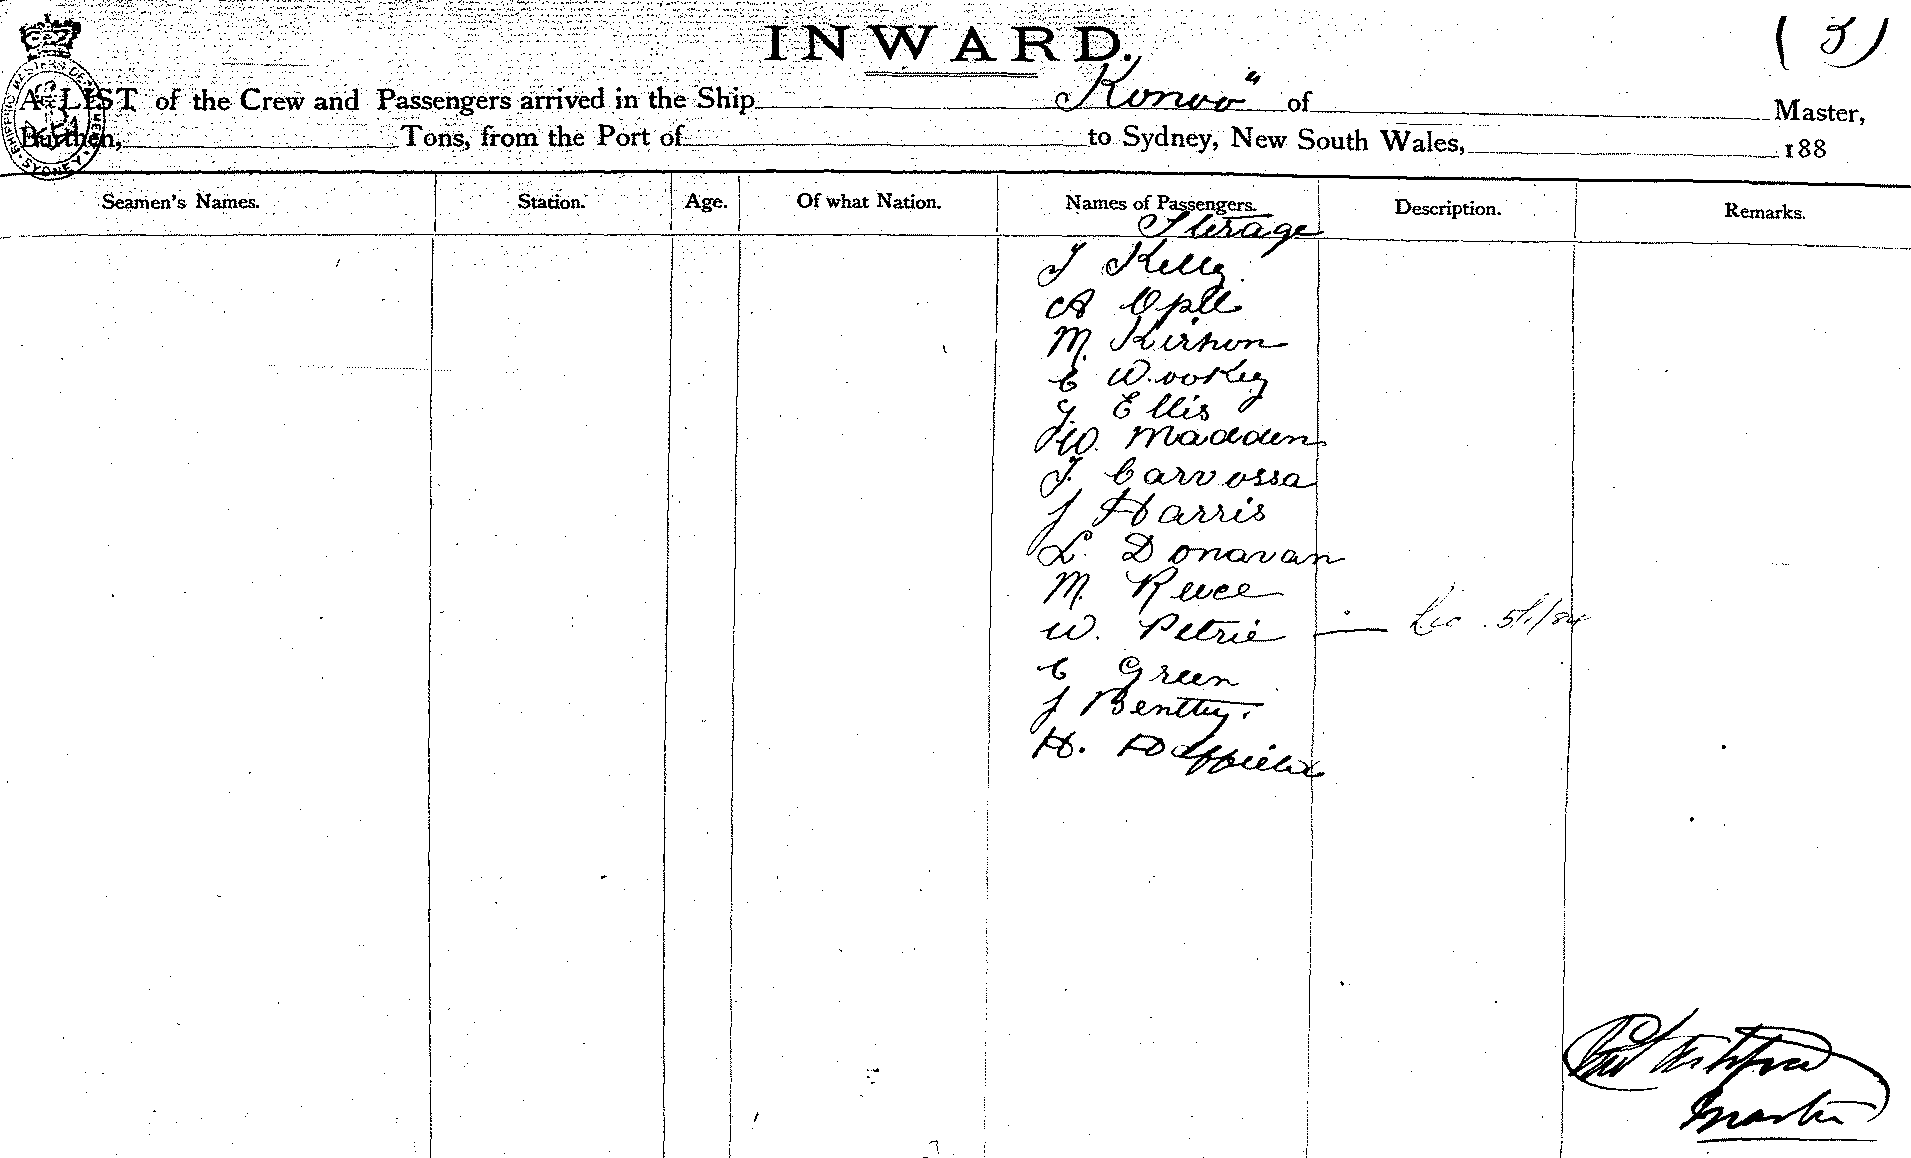 INWARD.
(3)
A LIST of the Crew and Passengers arrived in the Ship "Konoo" of Master,
Burthen, Tons, from the Port of to Sydney, New South Wales, 188
Seamen's Names. Station. Age. Of what Nation. Names of Passengers. Description. Remarks.
Sterage
J Kelly
A
M. Kirnon
C Workley
J. Ellis
W. Madden
J. Carvossa
J Harris
L. Donavan
M. Reece
W. Petrie —
C Green
J Bentley.
H. Duffield
Master